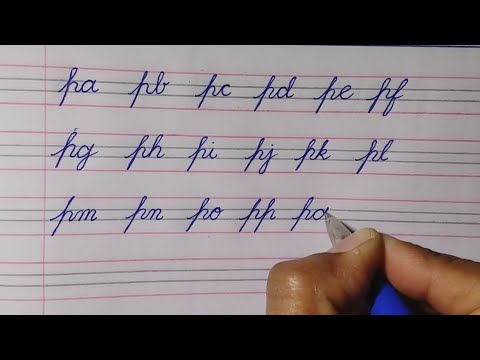 pa pb pc pd pe pf
pg ph pi pj pk pl
pm pn po pp